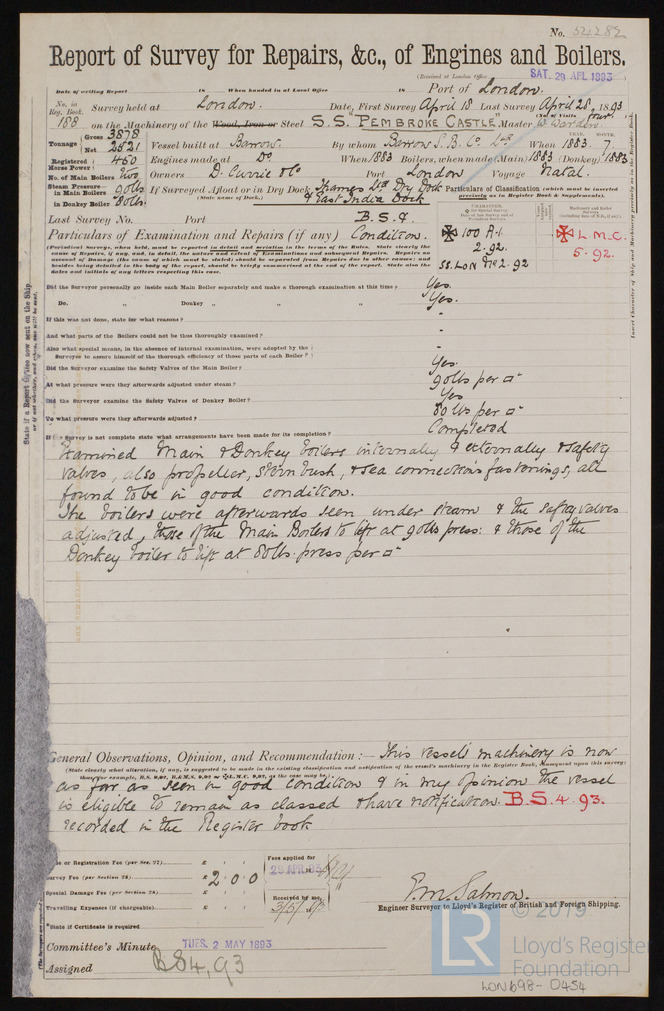 No. 54282
Report of Survey for Repairs, &c., of Engines and Boilers.
(Received at London Office SAT. 29 APL 1893)
Date of writing Report 18 When handed in at Local Office 18 Port of London.
No. in Reg. Book. Survey held at London. Date, First Survey April 18 Last Survey April 28, 1893
(No. of Visits four)
188 on the Machinery of the Wood, Iron or Steel S.S. "Pembroke Castle" Master W. Warden
Tonnage Gross 3878 Net 2521 Vessel built at Barrow. By whom Barrow S. B. Co. Ltd When 1883. 7.
YEAR. MONTH.
Registered Horse Power 450 Engines made at Do When 1883 Boilers, when made (Main) 1883 (Donkey) 1883
No. of Main Boilers Two Owners D. Currie & Co Port London Voyage Natal.
Steam Pressure—in Main Boilers 90lbs If Surveyed Afloat or in Dry Dock Thames Ltd Dry Dock & East India Dock
(State name of Dock.)
in Donkey Boiler 80lbs.
Particulars of Classification (which must be inserted precisely as in Register Book & Supplements).
Last Survey No. Port B.S.&.
Particulars of Examination and Repairs (if any) Condition.
✠ 100 A.1.
2.92.
SS. Lon No 2. 92
✠ L.M.C.
5.92.
(Periodical Surveys, when held, must be reported in detail and seriatim in the terms of the Rules. State clearly the cause of Repairs, if any, and, in detail, the nature and extent of Examinations and subsequent Repairs. Repairs on account of Damage (the cause of which must be stated) should be separated from Repairs due to other causes; and besides being detailed in the body of the report, should be briefly summarised at the end of the report. State also the dates and initials of any letters respecting this case.
Did the Surveyor personally go inside each Main Boiler separately and make a thorough examination at this time? Yes.
Do. " Donkey " " " Yes.
If this was not done, state for what reasons? -
And what parts of the Boilers could not be thus thoroughly examined? -
Also what special means, in the absence of internal examination, were adopted by the Surveyor to assure himself of the thorough efficiency of those parts of each Boiler? -
Did the Surveyor examine the Safety Valves of the Main Boiler? Yes.
At what pressure were they afterwards adjusted under steam? 90lbs per □"
Did the Surveyor examine the Safety Valves of Donkey Boiler? Yes
To what pressure were they afterwards adjusted? 80 lbs per □"
If the Survey is not complete state what arrangements have been made for its completion? Completed
Examined Main & Donkey boilers internally & externally & safety
valves, also propeller, stern bush, & sea connections fastenings, all
found to be in good condition.
The boilers were afterwards seen under steam & the safety valves
adjusted, those of the Main Boilers to lift at 90lbs press: & those of the
Donkey boiler to lift at 80lbs. press per □"
General Observations, Opinion, and Recommendation:— This vessels machinery is now
(State clearly what alteration, if any, is suggested to be made in the existing classification and notification of the vessel's machinery in the Register Book, consequent upon this survey;
as far as seen in good condition & in my opinion the vessel
is eligible to remain as classed & have notification. B.S. 4. 93.
recorded in the Register book
or Registration Fee (per Sec. 27) £
Survey Fee (per Section 28) £ 2 . 0 . 0
Special Damage Fee (per Section 28) £
Travelling Expenses (if chargeable) £
Fees applied for
29 APR. 93
Received by me,
3/5/93
State if Certificate is required
E. M. Salmon.
Engineer Surveyor to Lloyd's Register of British and Foreign Shipping.
Committee's Minute TUES. 2 MAY 1893
Assigned BS4,93
LR
© 2019
Lloyd's Register
Foundation
LON698-0454